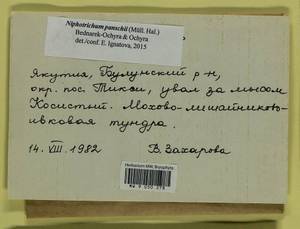 Niphotrichum panschii (Müll. Hal.)
Bednarek-Ochyra & Ochyra
det./conf. E. Ignatova, 2015
Якутия, Булунский р-н,
окр. пос. Тикси, увал за мысом
Косистый. Мохово-лишайниково-
ивковая тундра.
14. VIII. 1982 В. Захарова
Herbarium MW, Bryophyta
MW 9 050 278